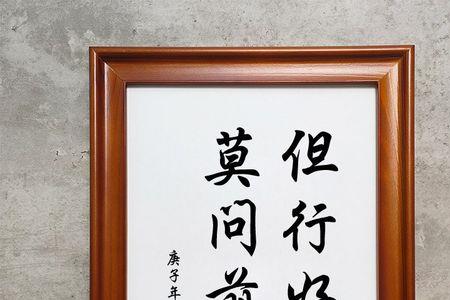 但行好
莫问前
庚子年